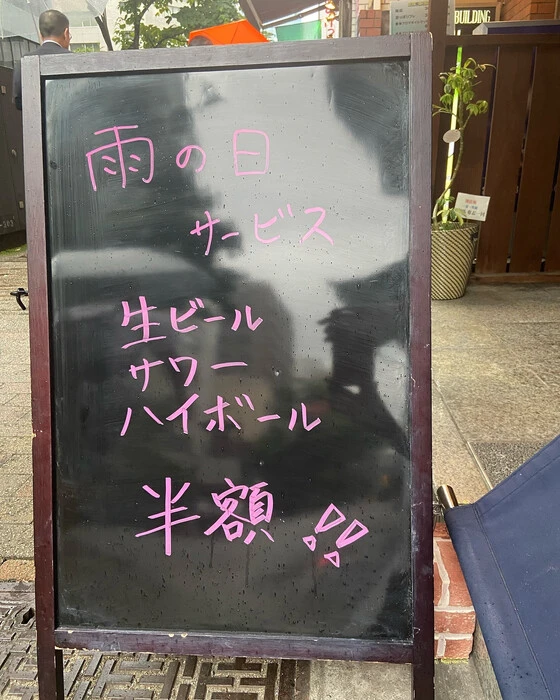 BUILDING
雨の日
サービス
生ビール
サワー
ハイボール
半額!!